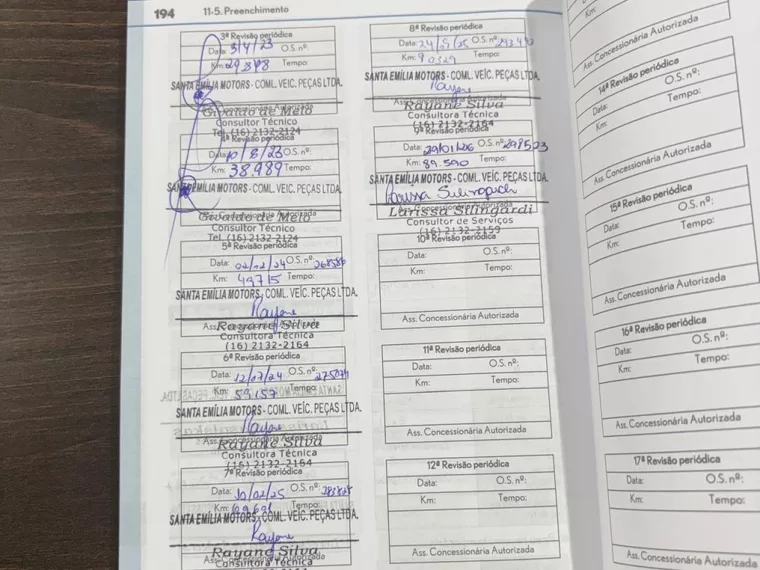 194
11-5. Preenchimento
3ª Revisão periódica
Data: 3/4/23 O.S. nº:
Km: 29.878 Tempo:
SANTA EMÍLIA MOTORS - COML. VEIC. PEÇAS LTDA.
Ass. Concessionária Autorizada
Givaldo de Melo
Consultor Técnico
Tel. (16) 2132-2124
4ª Revisão periódica
Data: 10/8/23 O.S. nº:
Km: 38.989 Tempo:
SANTA EMÍLIA MOTORS - COML. VEIC. PEÇAS LTDA.
Ass. Concessionária Autorizada
Givaldo de Melo
Consultor Técnico
Tel. (16) 2132-2124
5ª Revisão periódica
Data: 02/12/24 O.S. nº:
Km: 49715 Tempo:
SANTA EMÍLIA MOTORS - COML. VEÍC. PEÇAS LTDA.
Rayane
Rayane Silva
Consultora Técnica
(16) 2132-2164
6ª Revisão periódica
Data: 12/07/24 O.S. nº:
Km: 59157 Tempo:
SANTA EMÍLIA MOTORS - COML. VEÍC. PEÇAS LTDA.
Rayane
Rayane Silva
Consultora Técnica
(16) 2132-2164
7ª Revisão periódica
Data: 10/02/25 O.S. nº:
Km: Tempo:
SANTA EMÍLIA MOTORS - COML. VEÍC. PEÇAS LTDA.
Rayane
Rayane Silva
Consultora Técnica
8ª Revisão periódica
Data: O.S. nº:
Km: Tempo:
SANTA EMÍLIA MOTORS - COML. VEÍC. PEÇAS LTDA.
Rayane
Rayane Silva
Consultora Técnica
(16) 2132-2164
9ª Revisão periódica
Data: 29/01/26 O.S. nº: 298523
Km: 89.590 Tempo:
SANTA EMÍLIA MOTORS - COML. VEÍC. PEÇAS LTDA.
Larissa Silingardi
Ass. Concessionária Autorizada
Larissa Silingardi
Consultor de Serviços
(16) 2132-2159
10ª Revisão periódica
Data: O.S. nº:
Km: Tempo:
Ass. Concessionária Autorizada
11ª Revisão periódica
Data: O.S. nº:
Km: Tempo:
Ass. Concessionária Autorizada
12ª Revisão periódica
Data: O.S. nº:
Km: Tempo:
Ass. Concessionária Autorizada
Km:
Ass. Concessionária Autorizada
14ª Revisão periódica
Data: O.S. nº:
Km: Tempo:
Ass. Concessionária Autorizada
15ª Revisão periódica
Data: O.S. nº:
Km: Tempo:
Ass. Concessionária Autorizada
16ª Revisão periódica
Data: O.S. nº:
Km: Tempo:
Ass. Concessionária Autorizada
17ª Revisão periódica
Data: O.S. nº:
Km: Tempo:
Ass. Concessionária Autorizada